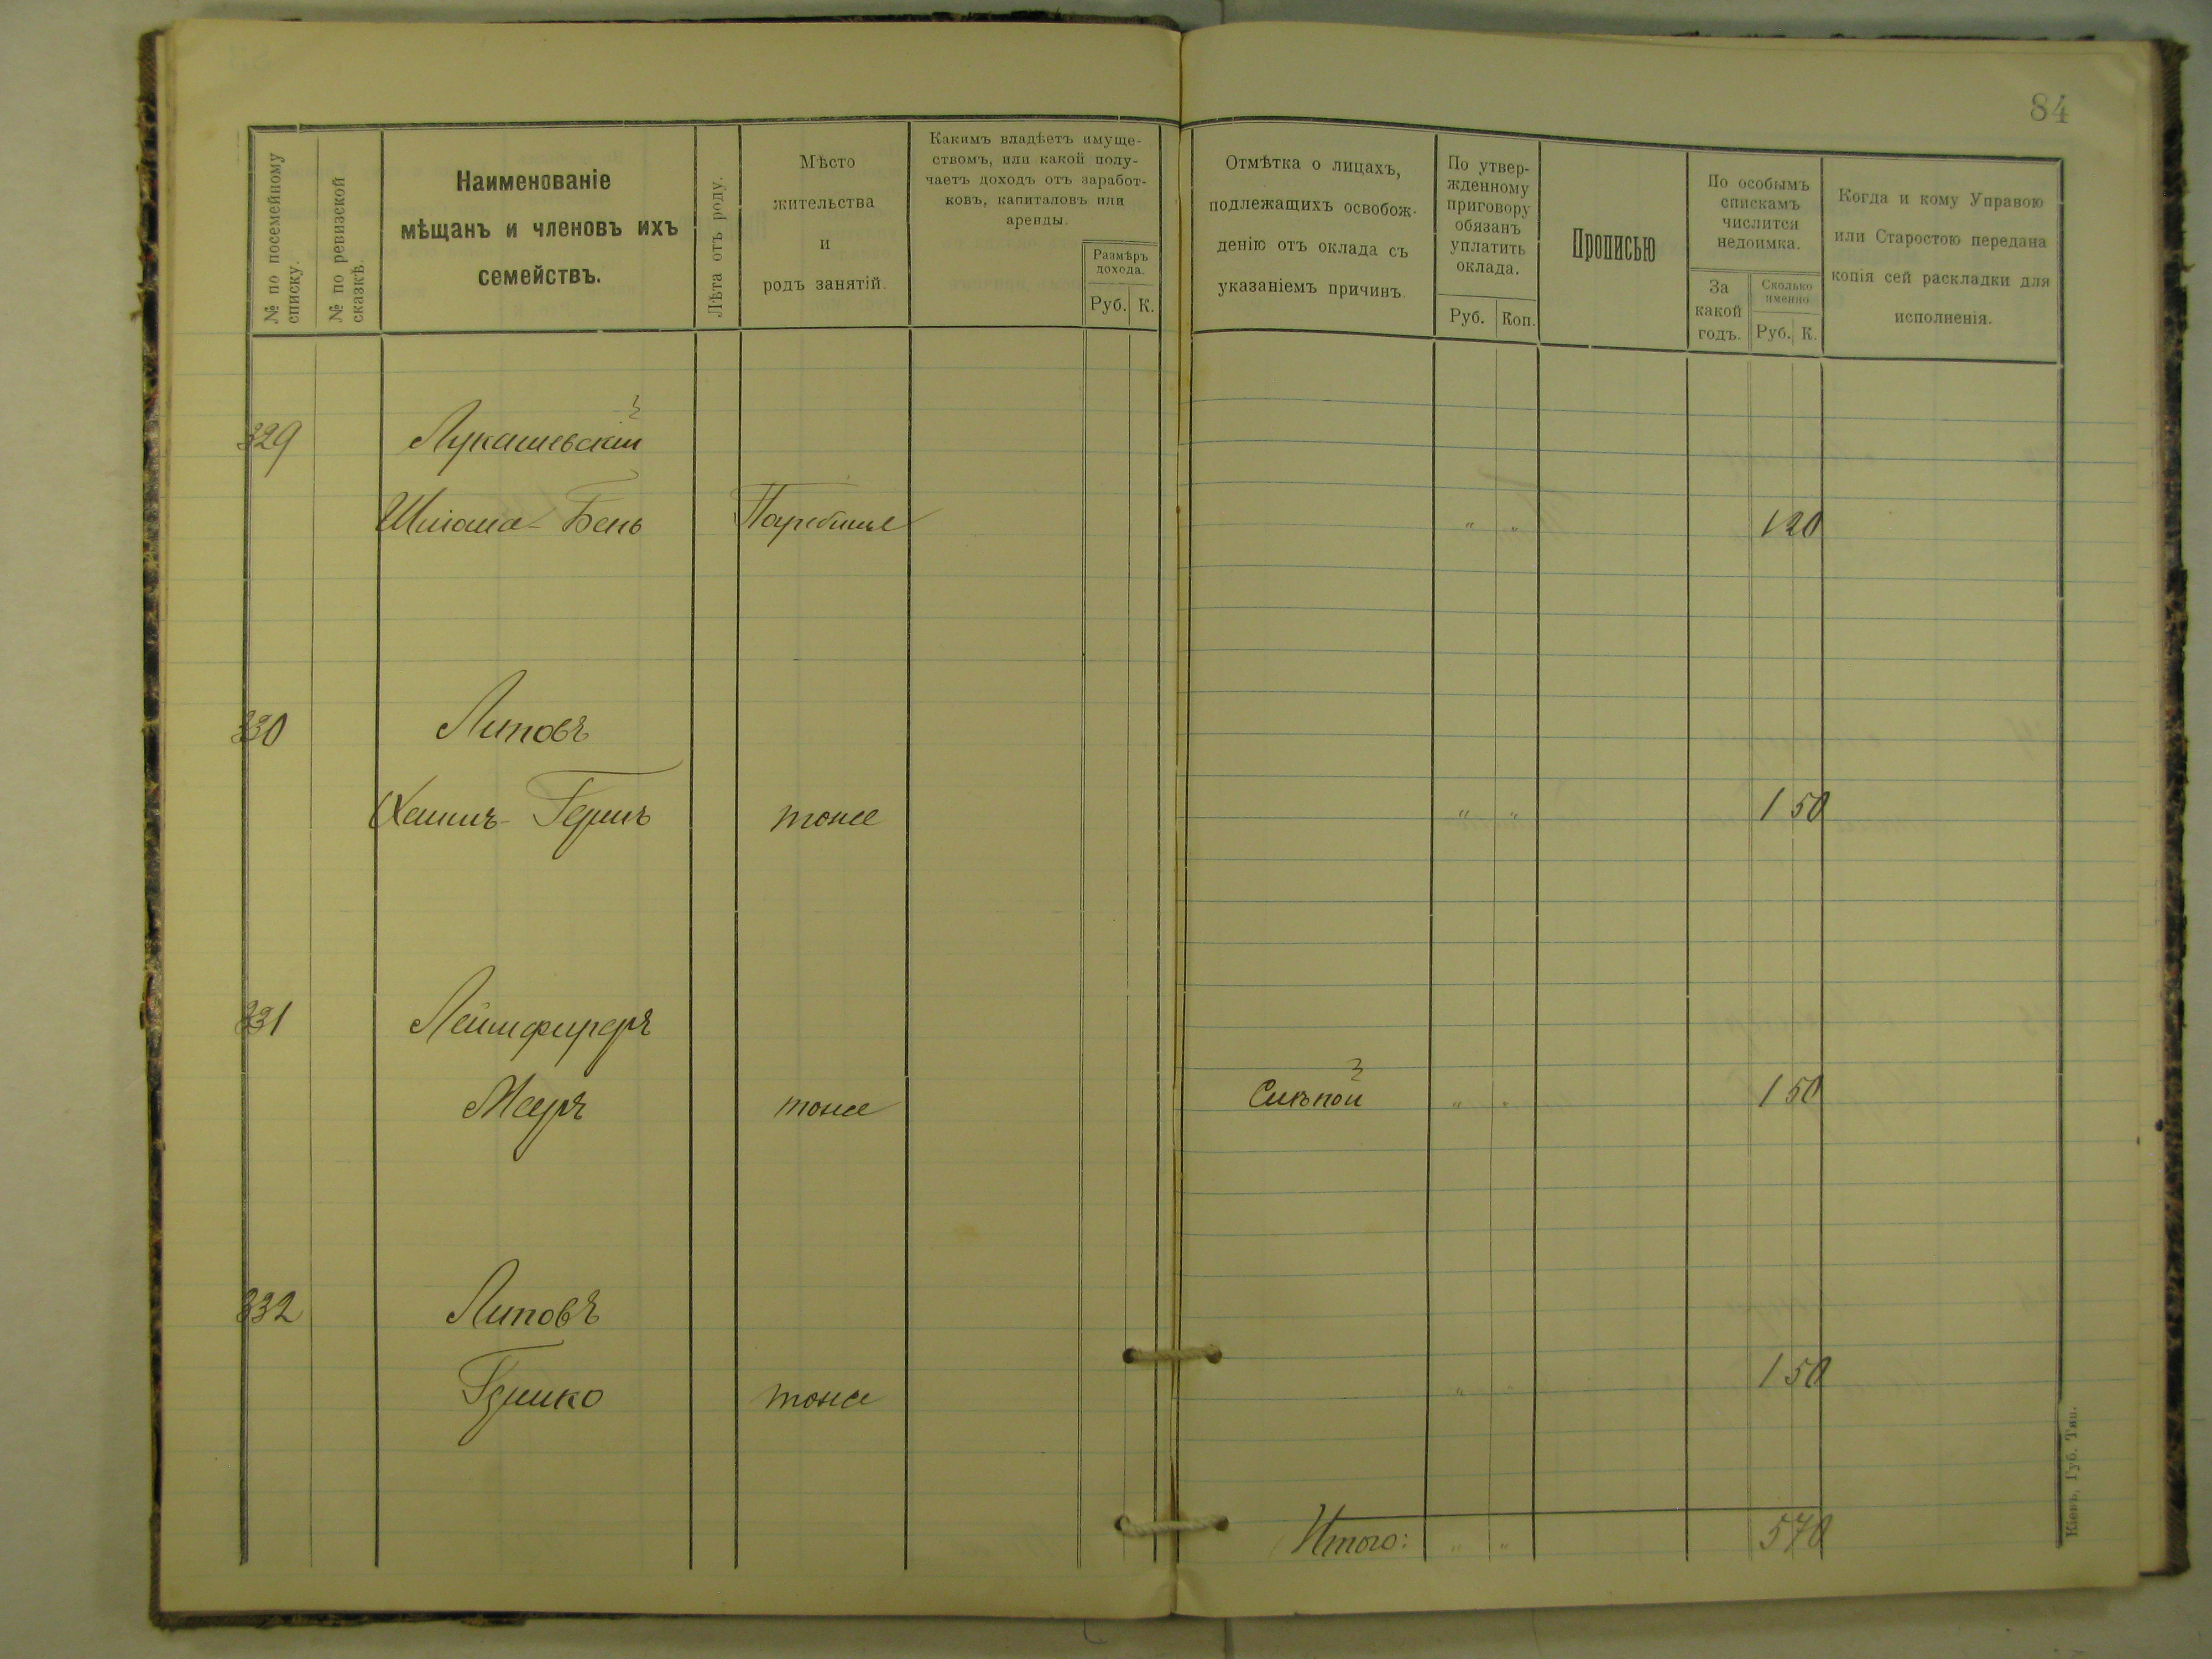 84
№ по посемейному списку.
№ по ревизской сказкѣ.
Наименованіе
мѣщанъ и членовъ ихъ
семействъ.
Лѣта отъ роду.
Мѣсто
жительства
и
родъ занятій.
Какимъ владѣетъ имуще-
ствомъ, или какой полу-
чаетъ доходъ отъ заработ-
ковъ, капиталовъ или
аренды.
Размѣръ
дохода.
Руб. К.
Отмѣтка о лицахъ,
подлежащихъ освобож-
денію отъ оклада съ
указаніемъ причинъ.
По утвер-
жденному
приговору
обязанъ
уплатить
оклада.
Руб. Коп.
Прописью
По особымъ
спискамъ
числится
недоимка.
За
какой
годъ.
Сколько
именно
Руб. К.
Когда и кому Управою
или Старостою передана
копія сей раскладки для
исполненія.
329 Лукашевскій
Шліома-Бень " " 1 20
330 Липовъ
Хаимъ- тоже " " 1 50
331
Мееръ тоже Слѣпой " " 1 50
332 Липовъ
тоже " 1 50
Итого: " " 5 70
Кіевъ, Губ. Тип.